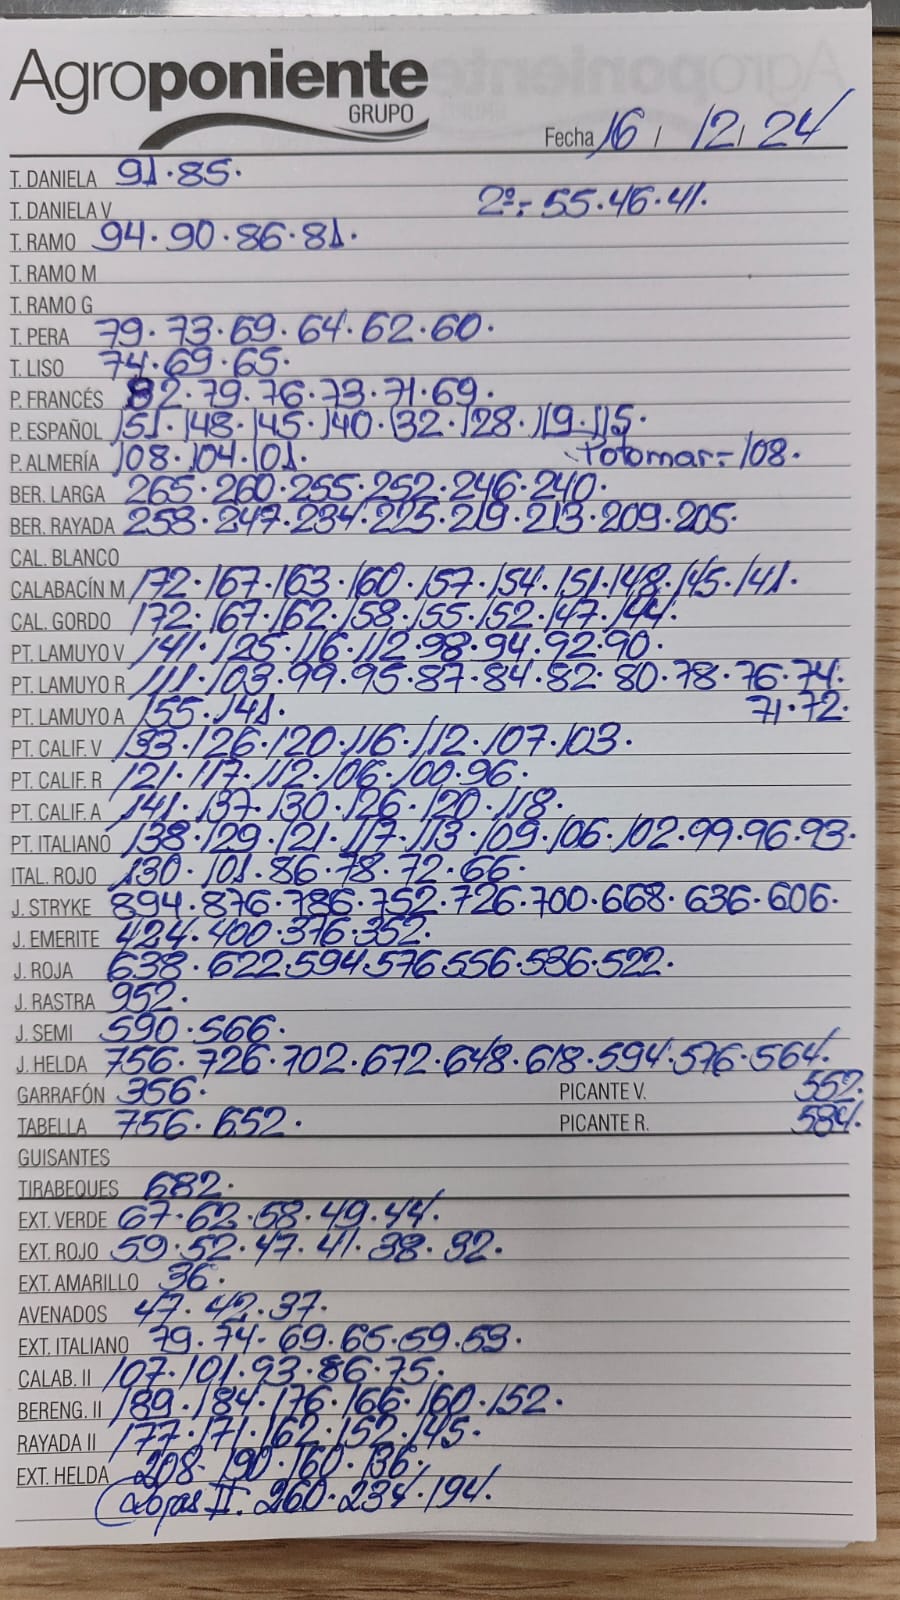 Agroponiente
GRUPO
Fecha 16 / 12 / 24
T. DANIELA 91.85.
T. DANIELA V 2º:- 55.46.41.
T. RAMO 94.90.86.81.
T. RAMO M
T. RAMO G
T. PERA 79.73.69.64.62.60.
T. LISO 74.69.65.
P. FRANCÉS 82.79.76.73.71.69.
P. ESPAÑOL 151.148.145.140.132.128.119.115.
P. ALMERÍA 108.104.101. Potomar:- 108.
BER. LARGA 265.260.255.252.246.240.
BER. RAYADA 258.247.234.225.219.213.209.205.
CAL. BLANCO
CALABACÍN M 172.167.163.160.157.154.151.148.145.141.
CAL. GORDO 172.167.162.158.155.152.147.144.
PT. LAMUYO V 141.125.116.112.98.94.92.90.
PT. LAMUYO R 111.103.99.95.87.84.82.80.78.76.74.
PT. LAMUYO A 155.141. 71.72.
PT. CALIF. V 133.126.120.116.112.107.103.
PT. CALIF. R 121.117.112.106.100.96.
PT. CALIF. A 141.137.130.126.120.118.
PT. ITALIANO 138.129.121.117.113.109.106.102.99.96.93.
ITAL. ROJO 130.101.86.78.72.66.
J. STRYKE 894.876.786.752.726.700.668.636.606.
J. EMERITE 424.400.376.352.
J. ROJA 638.622.594.576.556.536.522.
J. RASTRA 952.
J. SEMI 590.566.
J. HELDA 756.726.702.672.648.618.594.576.564.
GARRAFÓN 356. PICANTE V. 552.
TABELLA 756.652. PICANTE R. 584.
GUISANTES
TIRABEQUES 682.
EXT. VERDE 67.62.58.49.44.
EXT. ROJO 59.52.47.41.38.32.
EXT. AMARILLO 36.
AVENADOS 47.42.37.
EXT. ITALIANO 79.74.69.65.59.53.
CALAB. II 107.101.93.86.75.
BERENG. II 189.184.176.166.160.152.
RAYADA II 177.171.162.152.145.
EXT. HELDA 208.190.160.136.
II. 260.234.194.